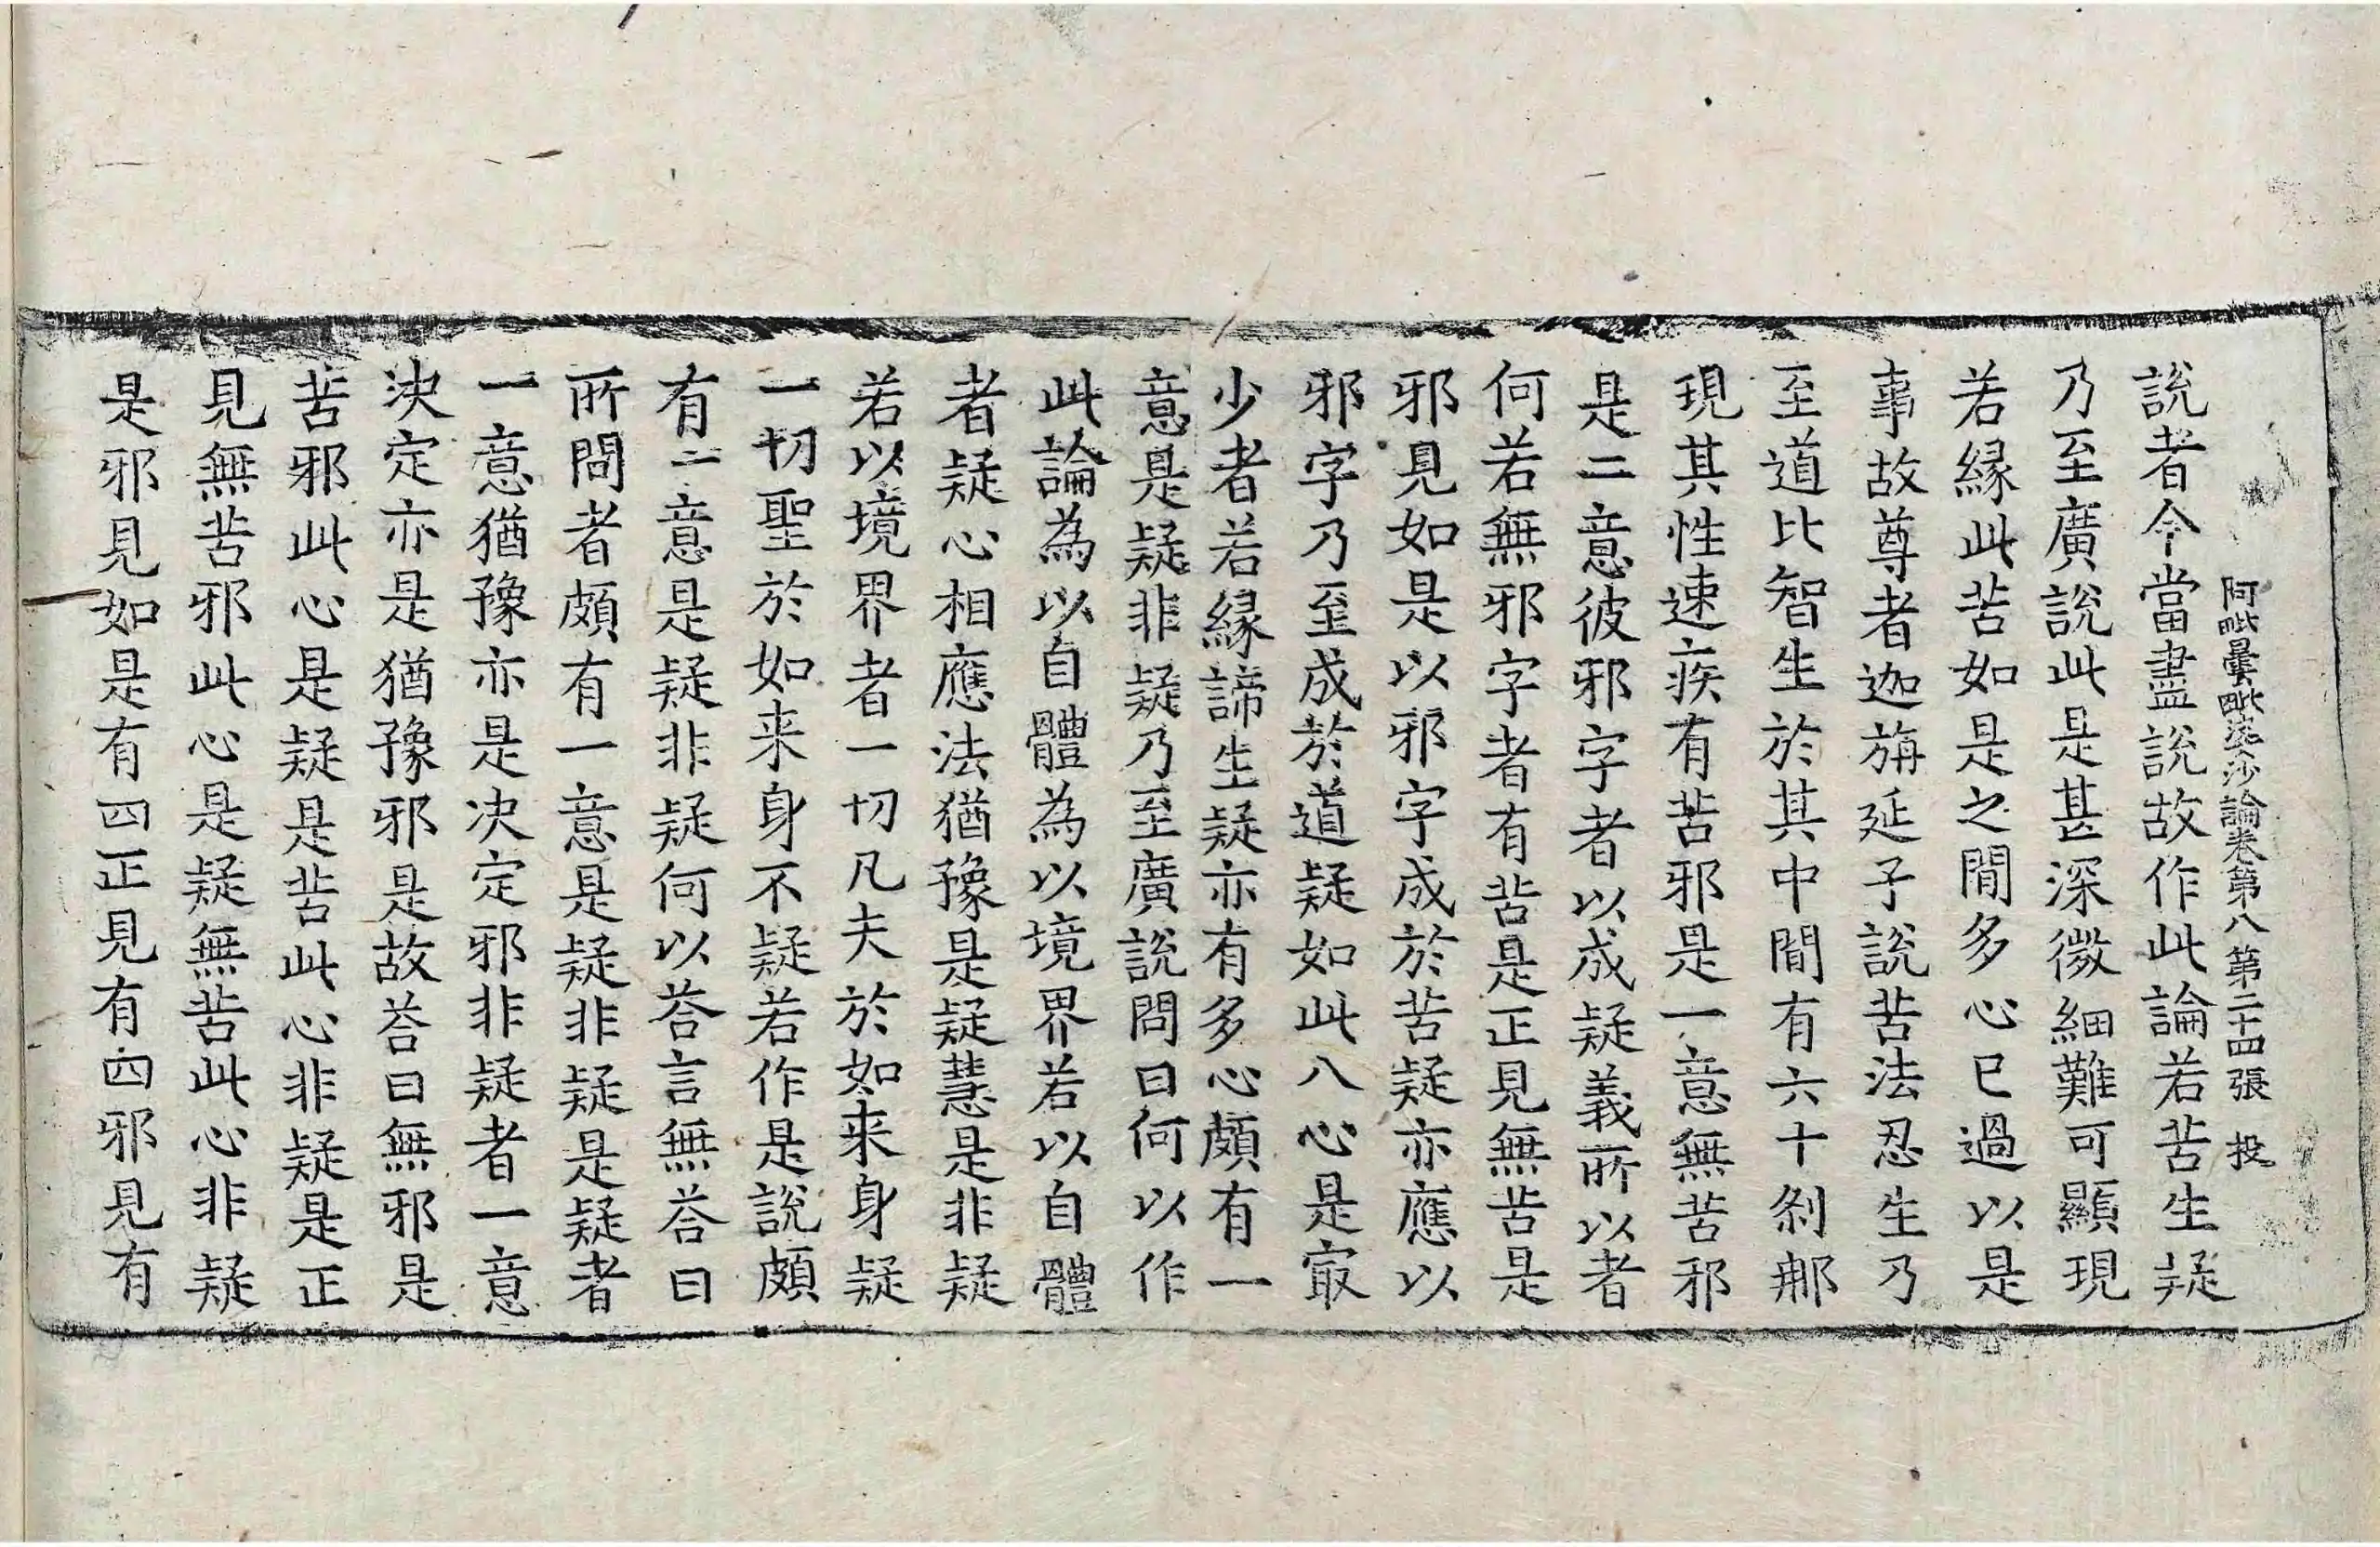 阿毗曇毗婆沙論卷第八 第二十四張 投
說者今當盡說故作此論若苦生疑
乃至廣說此是甚深微細難可顯現
若縁此苦如是之閒多心已過以是
事故尊者迦旃延子說苦法忍生乃
至道比智生於其中閒有六十剎那
現其性速疾有苦邪是一意無苦邪
是二意彼邪字者以成疑義所以者
何若無邪字者有苦是正見無苦是
邪見如是以邪字成於苦疑亦應以
邪字乃至成於道疑如此八心是㝡
少者若縁諦生疑亦有多心頗有一
意是疑非疑乃至廣說問曰何以作
此論為以自體為以境界若以自體
者疑心相應法猶豫是疑慧是非疑
若以境界者一切凡夫於如来身疑
一切聖於如来身不疑若作是說頗
有二意是疑非疑何以荅言無荅曰
所問者頗有一意是疑非疑是疑者
一意猶豫亦是決定邪非疑者一意
決定亦是猶豫邪是故荅曰無邪是
苦邪此心是疑是苦此心非疑是正
見無苦邪此心是疑無苦此心非疑
是邪見如是有四正見有四邪見有